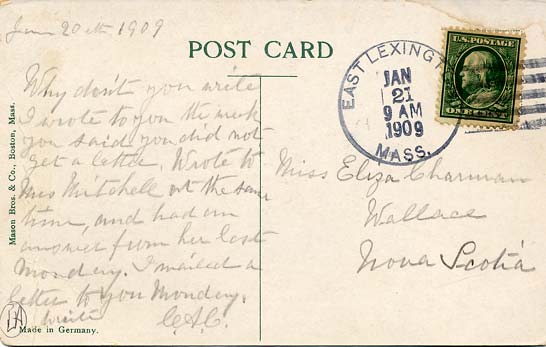 Jan 20th 1909
POST CARD
Why don't you write
I wrote to you the week
you said you did not
get a letter. Wrote to
Mrs Mitchell at the same
time, and had an
answer from her last
Monday. I mailed a
letter to you Monday.
write C.A.C.
Mason Bros. & Co., Boston, Mass.
Made in Germany.
EAST LEXINGT
JAN
21
9 AM
1909
MASS.
U.S. POSTAGE
ONE CENT
Miss Eliza Charman
Wallace
Nova Scotia